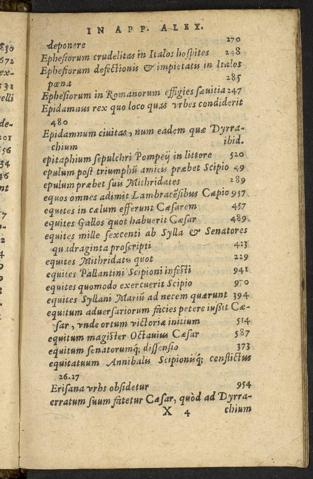 IN APP. ALEX.
deponere 270
Ephesiorum crudelitas in Italos hospites 248
Ephesiorum defectionis & impietatis in Italos
pœna 285
Ephesiorum in Romanorum effigies sæuitia 247
Epidamnus rex quo loco quas vrbes condiderit
480
Epidamnum ciuitas, num eadem quæ Dyrra-
chium ibid.
epitaphium sepulchri Pompeij in littore 520
epulum post triumphũ amicis præbet Scipio 49
epulum præbet suis Mithridates 289
equos omnes adimit Lambracẽsibus Capio 957
equites in cælum efferunt Cæsarem 457
equites Gallos quot habuerit Cæsar 489
equites mille sexcenti ab Sylla & Senatores
quadraginta proscripti 423
equites Mithridatis quot 229
equites Pallantini Scipioni infesti 941
equites quomodo exercuerit Scipio 970
equites Syllani Mariũ ad necem quærunt 394
equitum aduersariorum facies petere iussit Cæ-
sar, vnde ortum victoriæ initium 514
equitum magister Octauius Cæsar 587
equitum senatorumq; dissensio 373
equitatuum Annibalis Scipionisq; conflictus
26.27
Erisana vrbs obsidetur 954
erratum suum fatetur Cæsar, quòd ad Dyrra-
X 4 chium